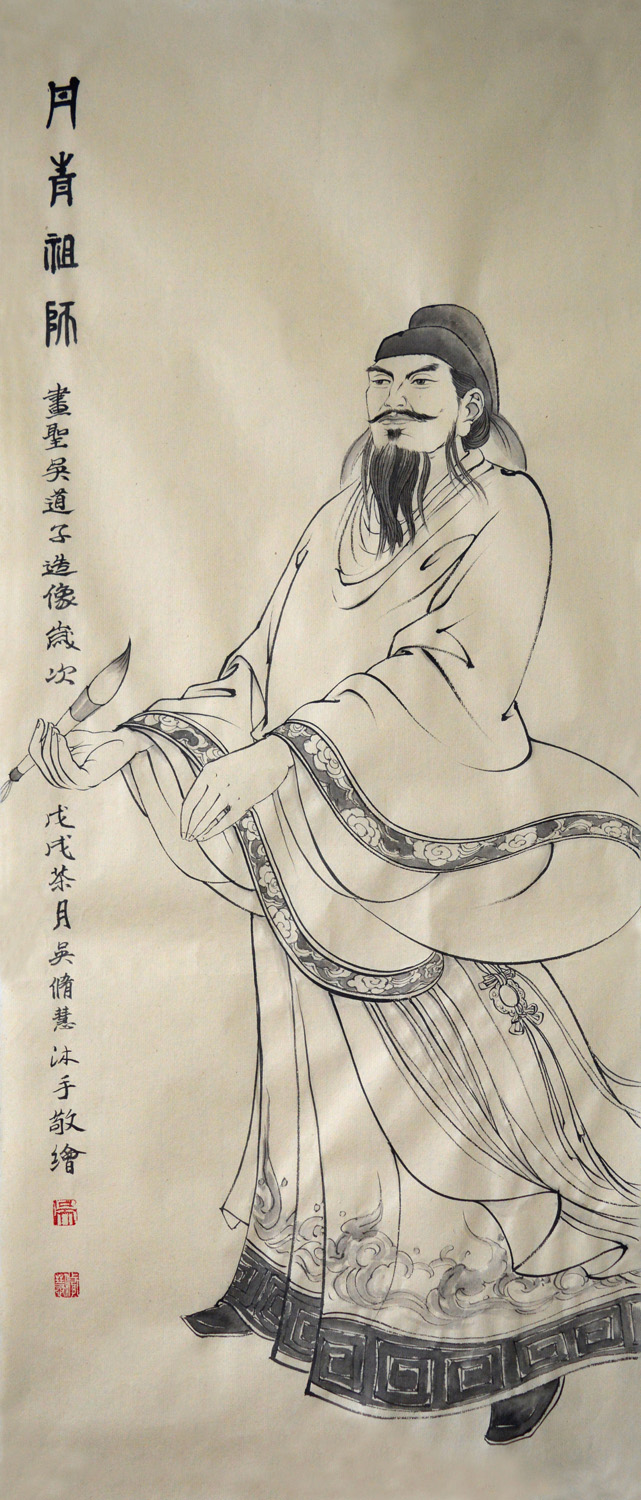 丹青祖師
畫聖吳道子造像歲次
戊戌茶月吳脩慧沐手敬繪